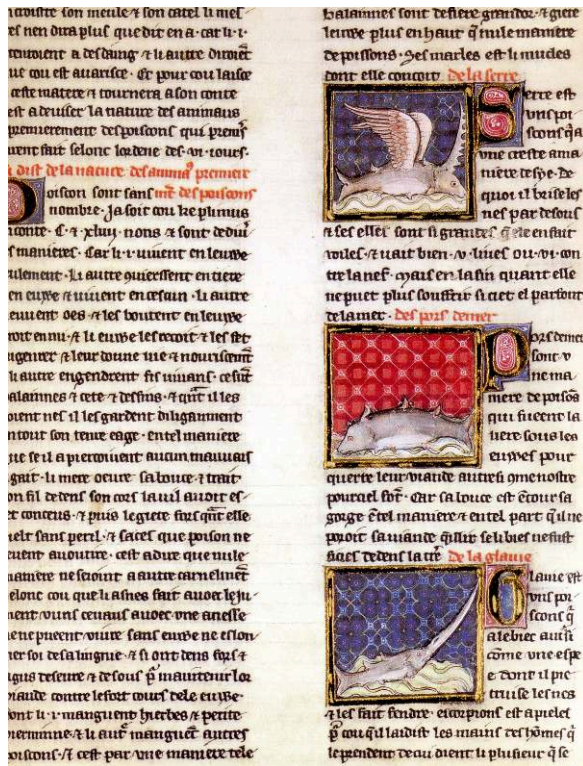 croistre son meule & son catel li mes
es nen dira plus que dit en a · car li ·
que cou est auarisce · Et pour cou laisce
ceste matere & tournera a son conte
est a deuiser la nature des animaus
premierement des poiscons qui premier
li dist de la nature des premiere
Poiscon sont sans des poiscons
nombre · ja soit cou ke plinius
raconte · C · & xliiij · nons & sont
manieres · Car li · i · uiuent en leuwe
seulement · li autre en tiere
en euwe & uiuent en cescun · li autre
oes & les en leuwe
& li euwe les recoit & les fet
& leur donne uie &
li autre engendrent fis uiuans · ce sunt
balainnes & cete & delfins · & quant il les
ont nes il les gardent diligaument
en tout son tenre eage · en tel maniere
que se il apercoiuent aucun mauuais
agait · li mere oeure sa bouce & trait
son fil dedens son cors la u il auoit es
te conceus · & puis le giete fors quant elle
uelt sans peril · & saces que poison ne
auoutire · cest a dire que nule
maniere ne scioint a autre carnelment
selonc cou que li asnes fait auoec le ju
ment · v uns ceuaus auoec vne anesse
ne ne pueent uiure sans euwe ne eslon
gier soi de sa lingnie · & si ont dens fors &
agus deseure & desous por maintenir lor
uiande contre le fort cours dele euwe
dont li · i · manguent hierbes & petite
uermine & li autre manguent autres
poiscons · & cest par vne maniere tele
balainnes sont de fiere grandor · & giete
leuwe plus en haut que nule maniere
de poissons · Ses marles est li mucles
dont elle concoit de la serre
Serre est
vns poi
scons qui a
vne creste a ma
niere despe · de
quoi il brise les
nes par desous
& ses elles sont si grandes quele en fait
uoiles · & uait bien · v · liues ou · vi · con
tre la nef · mais en la fin quant elle
ne puet plus souffrir si ciet el parfont
de la mer · des pors de mer
Pors de mer
sont v
ne ma
niere de poisons
qui fueent la
tiere sous les
euwes pour
querre leur uiande autresi comme nostre
pourciel font · Car sa bouce est entour sa
gorge en tel maniere & en tel part quil ne
poroit sa uiande quillir se li bies ne fust
ficies dedens la tere de la glaiue
Glaiue est
vns poi
scons qui
a le biec ausi
come vne espe
e dont il pie
truise les nes
& les fait fendre · escorpions est apieles
por cou quil blaist les mains des homes qui
le prendent de cui dient li plusieur que se